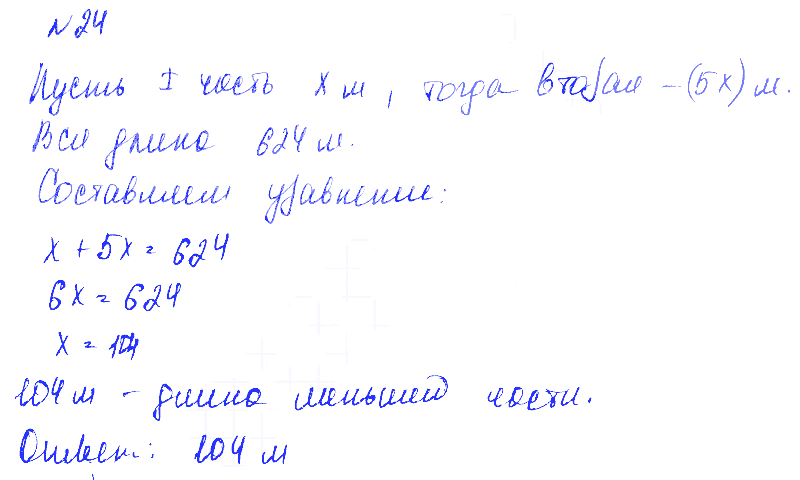 №24
Пусть I часть x м, тогда вторая – (5x) м.
Вся длина 624 м.
Составляем уравнение:
x + 5x = 624
6x = 624
x = 104
104 м – длина меньшей части.
Ответ: 104 м